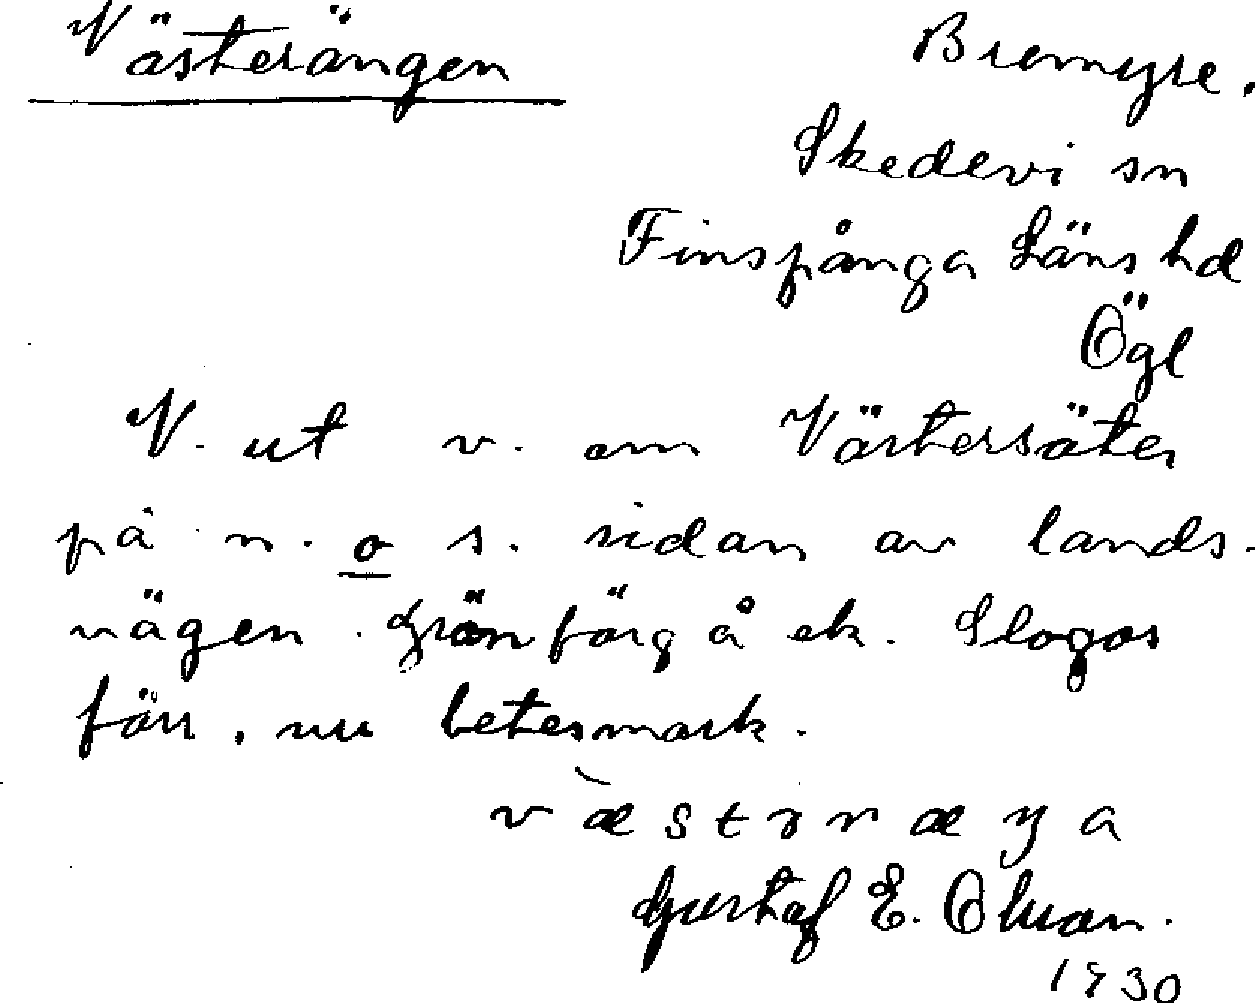 Västerängen
Bremyre.
Skedevi sn
Finspånga Läns hd
Ögl
V. ut v. om Västersäter
på n. o s. sidan av lands-
vägen. Grän för å ek. Slogos
förr, nu betesmark.
væstəræŋa
Gustaf E. Olsson.
1930